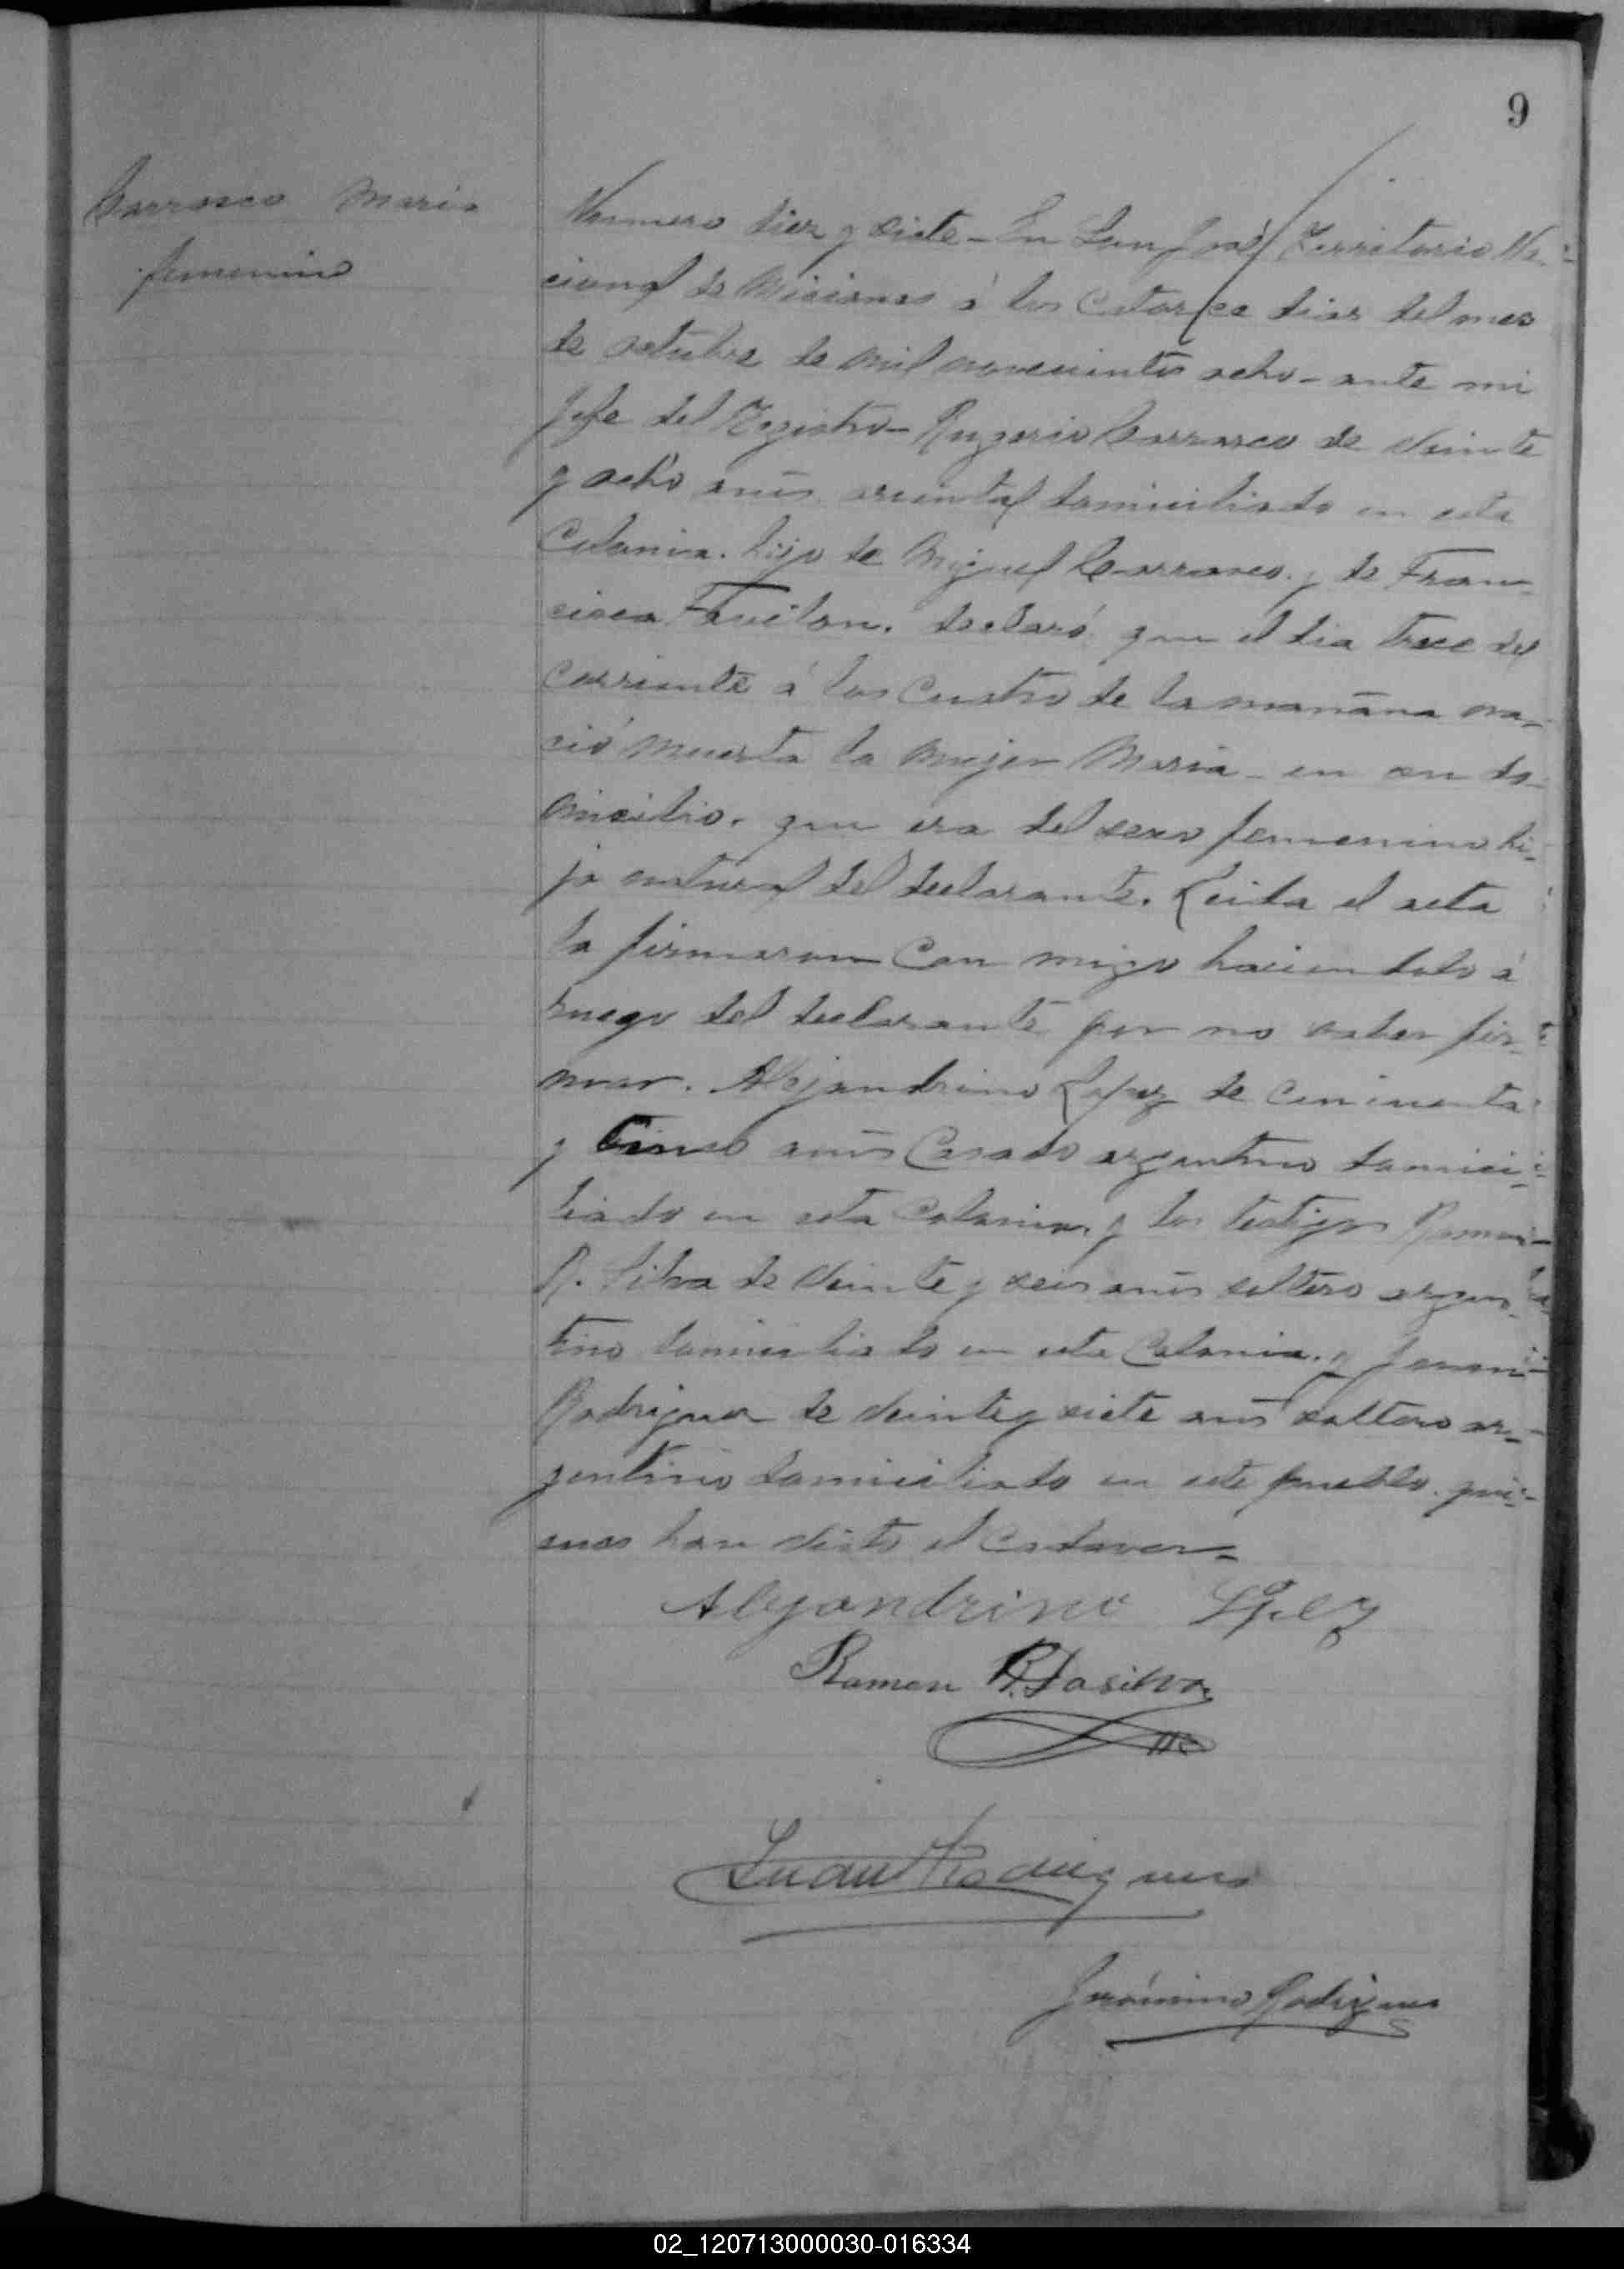 9
Carrasco Maria
femenino
Numero diez y siete - En San José Territorio Na-
cional de Misiones á los Catorce dias del mes
de octubre de mil novecientos ocho - ante mi
Jefe del Registro - Rugerio Carrasco de veinte
y ocho años oriental domiciliado en esta
Colonia. hijo de Miguel Carrasco. y de Fran-
cisca declaró que el dia trece del
corriente á las cuatro de la mañana na-
ció muerta la mujer Maria - en su do-
micilio. que era del sexo femenino hi-
ja natural del declarante. Leida el acta
la firmaron con migo haciendolo á
ruego del declarante por no saber fir-
mar. Alejandrino Lopez de cincuenta
y Cinco años Casado argentino domici-
liado en esta Colonia. y los testigos Ramon
R. Silva de veinte y seis años soltero argen-
tino domiciliado en esta Colonia. y
Rodriguez de veinte y siete años soltero ar-
gentino domiciliado en este pueblo. qui-
enes han visto el Cadaver =
Alejandrino Lopez
Ramon R. Dasilva
Juan Rodrigues
Gerónimo Rodrigues
02_120713000030-016334